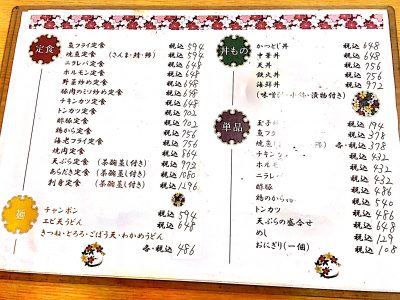 定食
魚フライ定食 税込 594
焼魚定食 (さんま・鮭・鯵) 税込 594
ニラレバ定食 税込 648
ホルモン定食 税込 648
野菜炒め定食 税込 648
豚肉のヒリ炒め定食 税込 648
チキンカツ定食 税込 648
トンカツ定食 税込 702
酢豚定食 税込 702
鶏から定食 税込 756
海老フライ定食 税込 756
焼肉定食 税込 864
天ぷら定食 (茶碗蒸し付き) 税込 972
あらだき定食 (茶碗蒸し付き) 税込 1080
刺身定食 (茶碗蒸し付き) 税込 1296
麺
チャンポン 税込 594
エビ天うどん 税込 648
きつね・とろろ・ごぼう天・わかめうどん 各・税込 486
丼もの
かつとじ丼 税込 648
中華丼 税込 648
天丼 税込 756
鉄火丼 税込 756
海鮮丼 税込 972
(味噌汁・小鉢・漬物付き)
単品
玉子 税込 194
魚フライ 税込 378
焼魚 各・税込 378
チキン 税込 432
ホルモン 税込 432
ニラレバ 税込 432
酢豚 税込 486
鶏のから 税込 540
トンカツ 税込 486
天ぷらの盛合せ 税込 648
めし 税込 129
おにぎり(一個) 税込 108